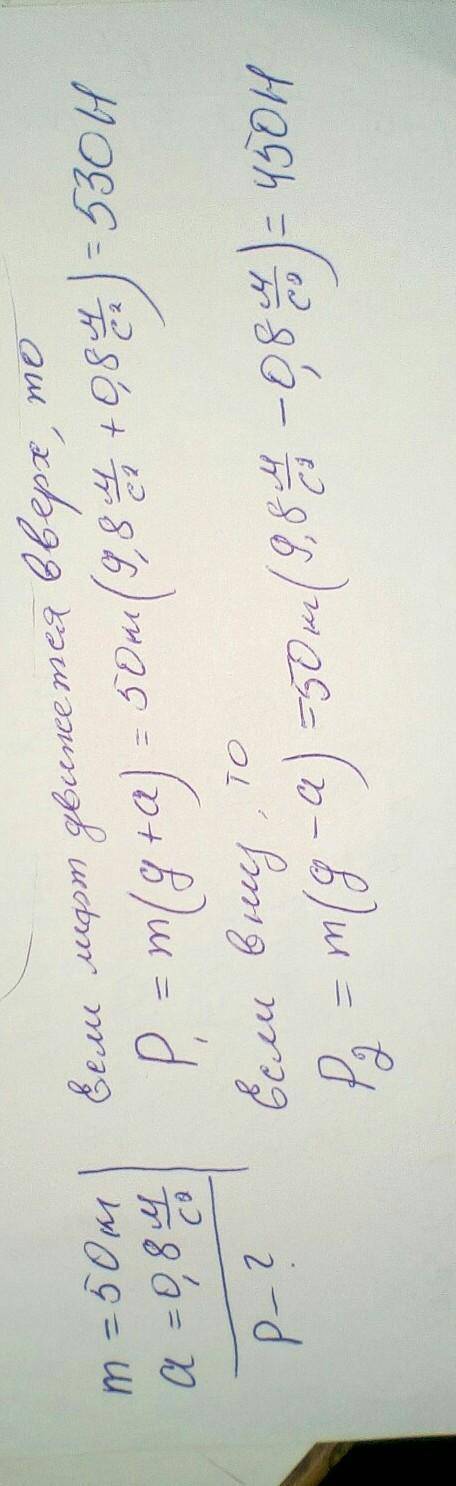 m = 50 кг
a = 0,8 м/с²
P – ?
Если лифт движется вверх, то
P₁ = m(g + a) = 50кг(9,8 м/с² + 0,8 м/с²) = 530Н
Если вниз, то
P₂ = m(g – a) = 50кг(9,8 м/с² – 0,8 м/с²) = 450Н